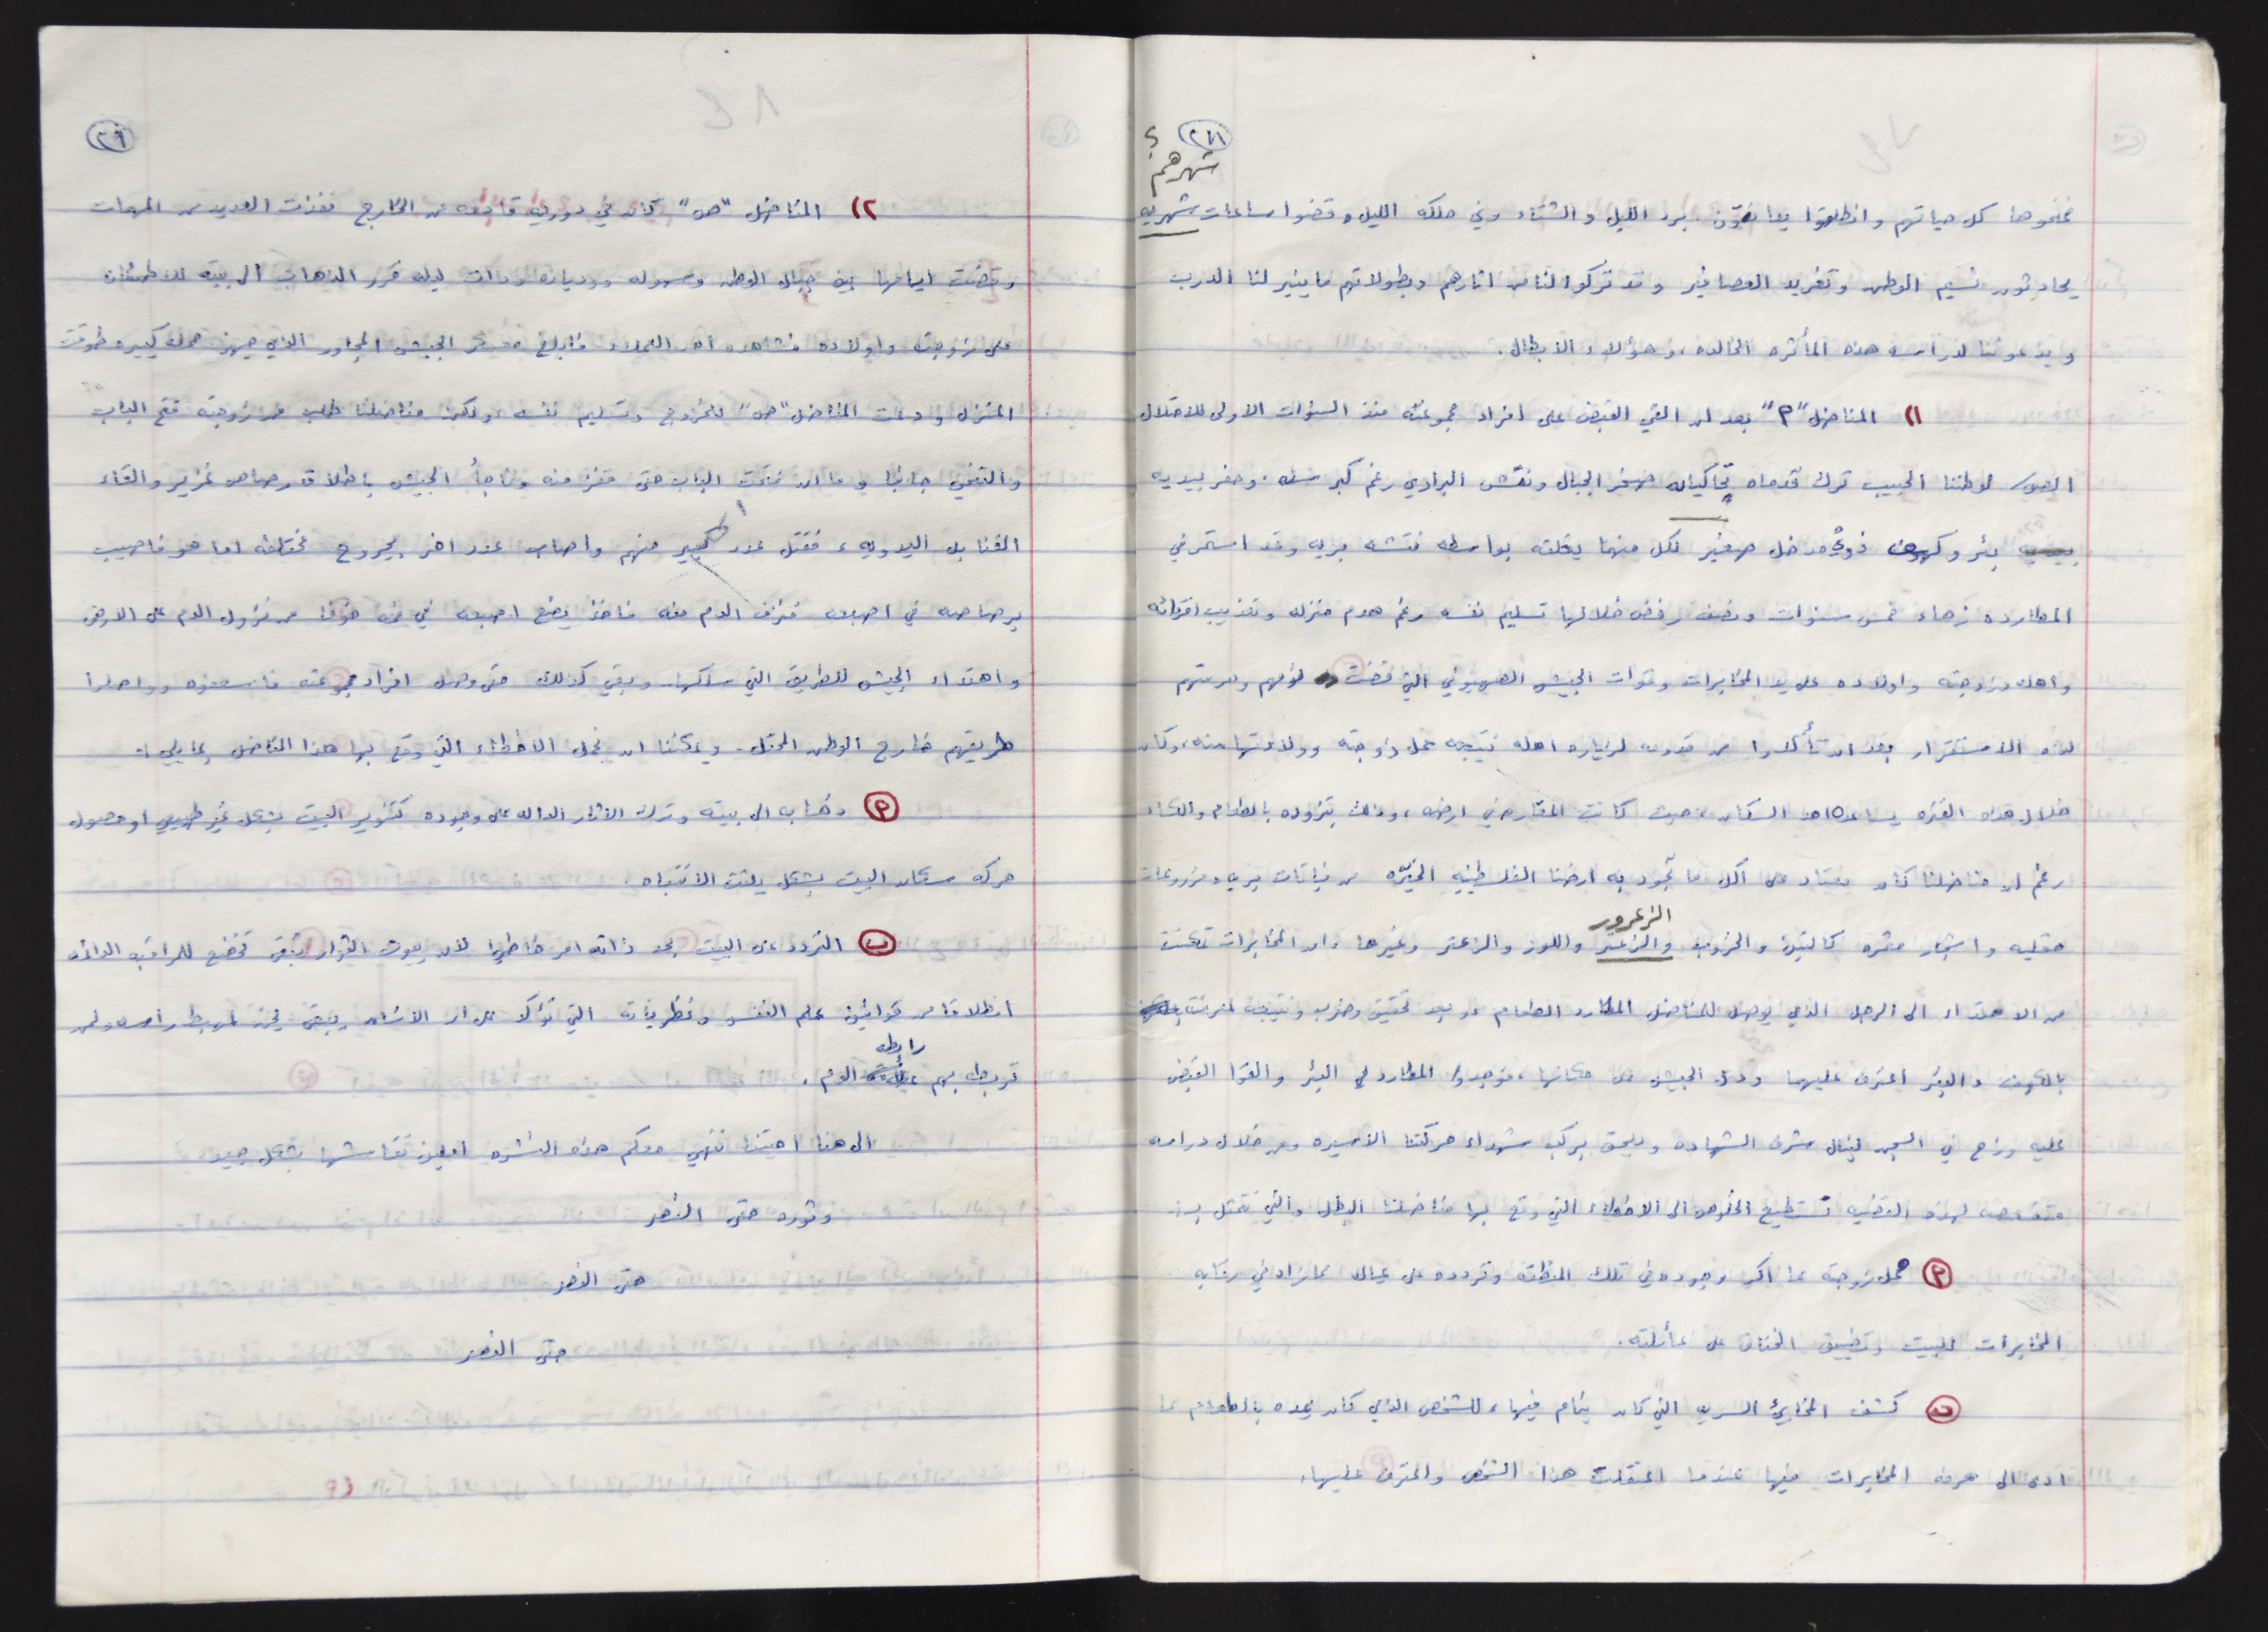 ٢٨
؟
شهرهم
فمنحوها كل حياتهم وانطلقوا يعانقون برد الليل والشتاء وفي حلكه الليل وقضوا ساعات شهريه
يحادثون نسيم الوطن وتغريد العصافير وقد تركوا لنا من اثارهم وبطولاتهم ما ينير لنا الدرب
ويدعوننا لدراسه هذه المأثره الخالده، وهؤلاء الأبطال.
١) المناضل "م" بعد ان القي القبض على افراد مجموعته منذ السنوات الاولى للاحتلال
لوطننا الحبيب ترك قدماه تحاكيان صخر الجبال ونقش البراري رغم كبر سنه. وحفر بيديه
بئر وكهوف ذوي مدخل صغير لكل منهما يغلقه بواسطه نتشه بريه وقد استمر في
المطارده زهاء خمس سنوات ونصف رفض خلالها تسليم نفسه رغم هدم منزله وتعذيب اقربائه
واهله وزوجته واولاده على يد المخابرات وقوات الجيش الصهيوني التي قضت نومهم وحرمتهم
لذه الاستقرار بعد ان تأكدوا من قدومه لزياره اهله نتيجه حمل زوجته وولادتها منه، وكان
خلال هذه الفتره يساعده احد السكان، حيث كانت المغاره في ارضه، وذلك بتزويده بالطعام والكساء
رغم ان مناضلنا كان يعتاد على اكل ما تجود به ارضنا الفلسطينيه الخيّره من نباتات بريه ومزروعات
الزعرور
حقليه واشجار مثمره كالتين والخروب والزعتر واللوز والزعتر وغيرها، ان المخابرات تمكنت
من الاهتداء الى الرجل الذي يوصل للمناضل المطارد الطعام وبعد تحقيق وضرب ونتيجه لمعرفته
بالكهوف والبئر اعترف عليهما ودل الجيش على مكانها، فوجدوا المطارد في البئر والقوا القبض
عليه وزج في السجن لينال شرف الشهاده ويلحق بركب شهداء حركتنا الاسيره ومن خلال دراسه
لهذه القضيه نستطيع الخلوص الى الاخطاء التي وقع بها مناضلنا البطل والتي تتمثل بـ:
م حمل زوجته مما اكد وجوده في تلك المنطقه وتردده على عياله مما زاد في رقابه
المخابرات للبيت وتضييق الخناق على عائلته.
ب كشف المخابئ السريه التي كان ينام فيها، للشخص الذي كان يمده بالطعام مما
ادى الى معرفه المخابرات فيها عندما اعتقلت هذا الشخص واعترف عليها.
٢٩
٢) المناضل "ص" كان في دوريه قادمه من الخارج نفذت العديد من المهمات
وقضت ايامها بين جبال الوطن وسهوله ووديانه وذات ليله قرر الذهاب الى بيته للاطمئنان
على زوجته واولاده فشاهده احد العملاء فأبلغ معسكر الجيش المجاور الذي جهز حمله كبيره طوقت
المنزل ودعت المناضل "ص" للخروج وتسليم نفسه ولكن مناضلنا طلب من زوجته فتح الباب
والتنحي جانبا وما ان فتحت الباب حتى قفز منه وفاجأ الجيش باطلاق رصاص غزير والقاء
القنابل اليدويه، فقتل عدد كبير منهم واصاب عدد اخر بجروح مختلفه اما هو فاصيب
برصاصه في اصبعه فنزف الدم منه فاخذ يضع اصبعه في فمه خوفا من نزول الدم على الارض
واهتداء الجيش للطريق التي سلكها. وبقي كذلك حتى وصل افراد مجموعته فاسعفوه وواصلوا
طريقهم خارج الوطن المحتل. ويمكننا ان نجمل الاخطاء التي وقع بها هذا المناضل بما يلي:
م ذهابه الى بيته وترك الاثار الداله على وجوده كتنوير البيت بشكل غير طبيعي او حصول
حركه سكان البيت بشكل يلفت الانتباه.
ب التردد على البيت بحد ذاته امر خاطئ لان بيوت الثوار تبقى تخضع للمراقبه الدائمه
انطلاقا من قوانين علم النفس ونظرياته التي تؤكد على ان الانسان يبقى يحن لمسقط راسه ولمن
رابطه
تربطه بهم الدم.
الى هنا احبتنا ننهي معكم هذه النشره املين نقاشها بشكل جيد
وثوره حتى النصر
حتى النصر
حتى النصر